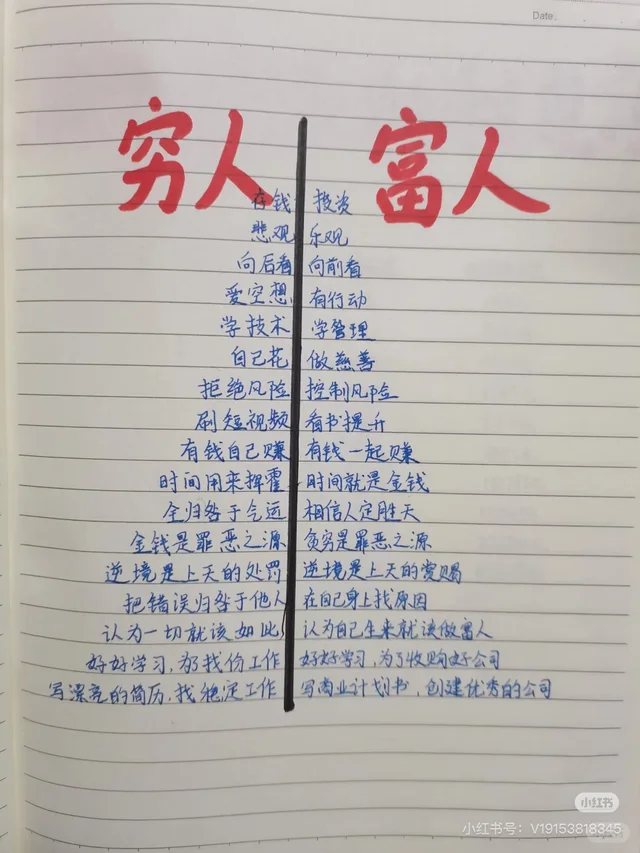 Date:
穷人 富人
存钱 投资
悲观 乐观
向后看 向前看
爱空想 有行动
学技术 学管理
自己花 做慈善
拒绝风险 控制风险
刷短视频 看书提升
有钱自己赚 有钱一起赚
时间用来挥霍 时间就是金钱
全归咎于气运 相信人定胜天
金钱是罪恶之源 贫穷是罪恶之源
逆境是上天的处罚 逆境是上天的赏赐
把错误归咎于他人 在自己身上找原因
认为一切就该如此 认为自己生来就该做富人
好好学习,为了找份工作 好好学习,为了收购好公司
写漂亮的简历,找稳定工作 写商业计划书,创建优秀的公司
小红书
小红书号:V19153818345